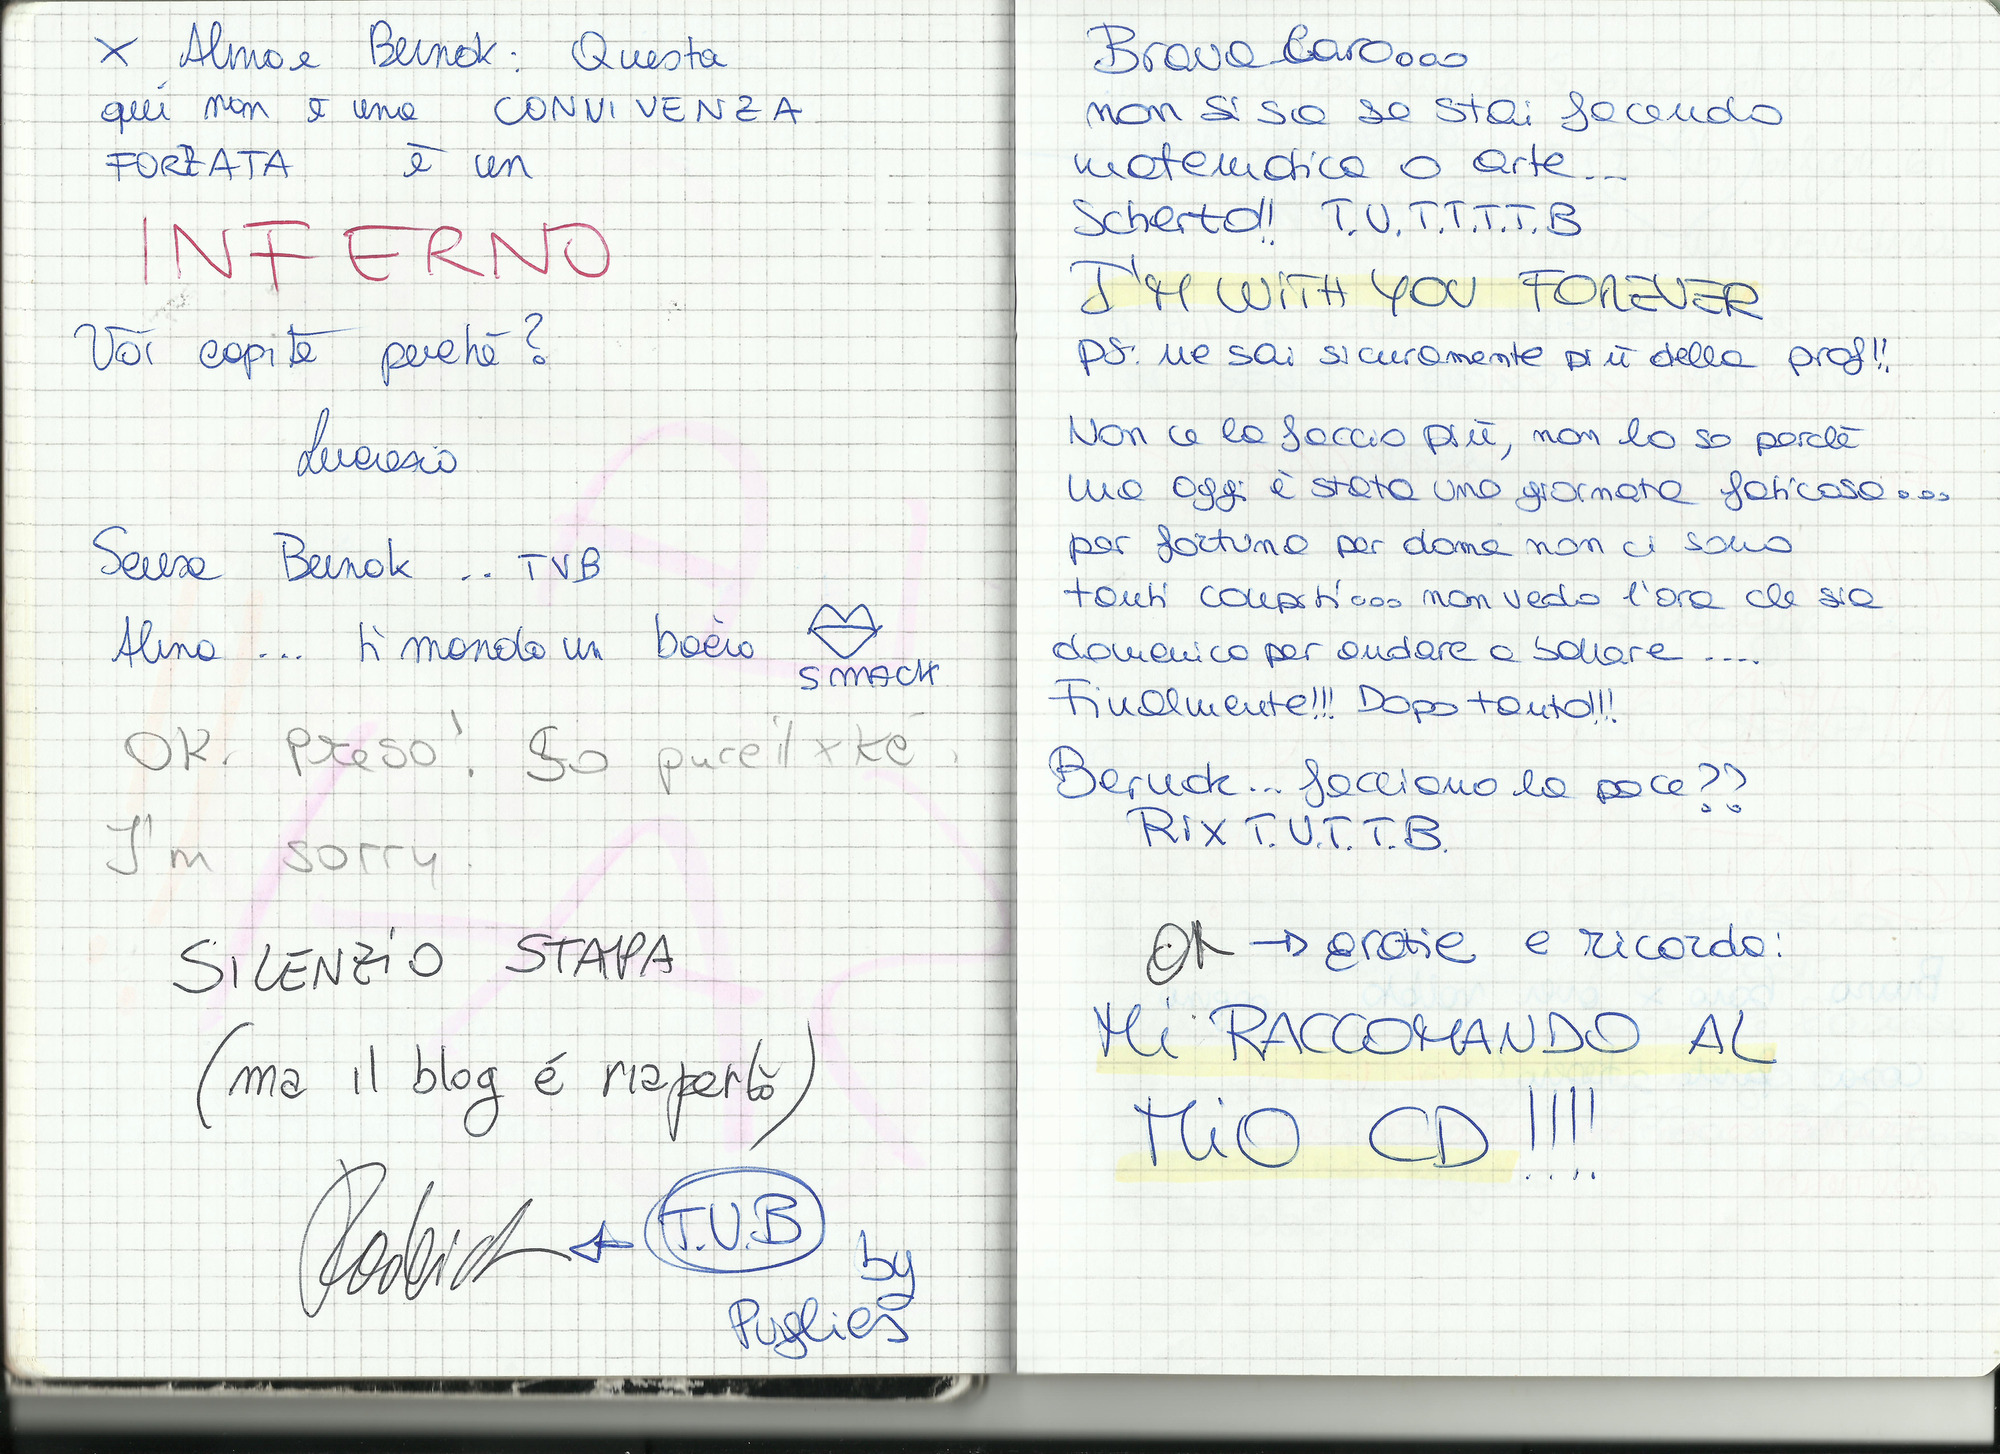 x Alma e Bernok: Questa
qui non è una CONVIVENZA
FORZATA è un
INFERNO
Voi capite perché?
Lucrezia
Scusa Bernok .. TVB
Alma ... ti mando un bacio
SMACK
OK. Preso! So pure il xké.
I'm sorry.
SILENZIO STAPA
(ma il blog é riaperto)
T.V.B
by
Pugliés
Brava Caroooo
non si sa se stai facendo
matematica o arte...
Scherto!! T.V.T.T.T.T.B
I'M WITH YOU FOREVER
PS: ne sai sicuramente più della prof!!
Non ce la faccio più, non lo so perché
ma oggi è stata una giornata faticosa....
per fortuna per doma non ci sono
tanti compiti... non vedo l'ora che sia
domenica per andare a ballare ....
Finalmente!!! Dopo tanto!!!
Bernok... facciamo la pace??
Rix T.V.T.T.B.
OK → gratie e ricorda:
Mi RACCOMANDO AL
MiO CD !!!!